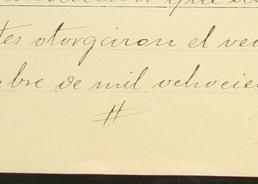 tes otorgaron el ve
bre de mil ochocie